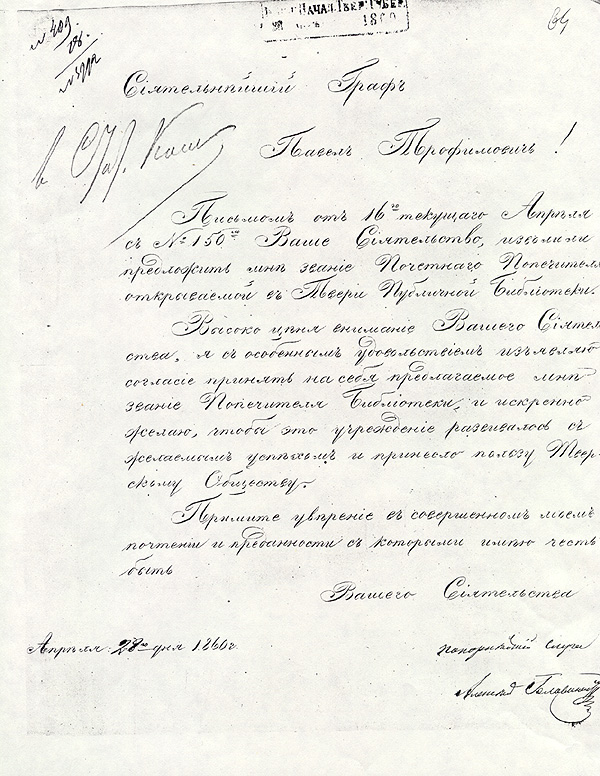 № 409
НАЧАЛ. ТВЕР. ГУБЕР.
1860
64
Сіятельнѣйшій Графъ
Павелъ Трофимовичъ!
Письмомъ отъ 16го текущаго Апрѣля
съ № 150мъ Ваше Сіятельство, изволили
предложить мнѣ званіе Почетнаго Попечителя
открываемой въ Твери Публичной Библіотеки.
Высоко цѣня вниманіе Вашего Сіятель
ства, я съ особеннымъ удовольствіемъ изъявляю
согласіе принять на себя предлагаемое мнѣ
званіе Попечителя Библіотеки, и искренно
желаю, чтобы это учрежденіе развивалось съ
желаемымъ успѣхомъ и принесло пользу Твер-
скому Обществу.
Примите увѣреніе въ совершенномъ моемъ
почтеніи и преданности съ которыми имѣю честь
быть
Вашего Сіятельства
покорнѣйшій слуга
Апрѣля 28го дня 1860 г.
Алексѣй